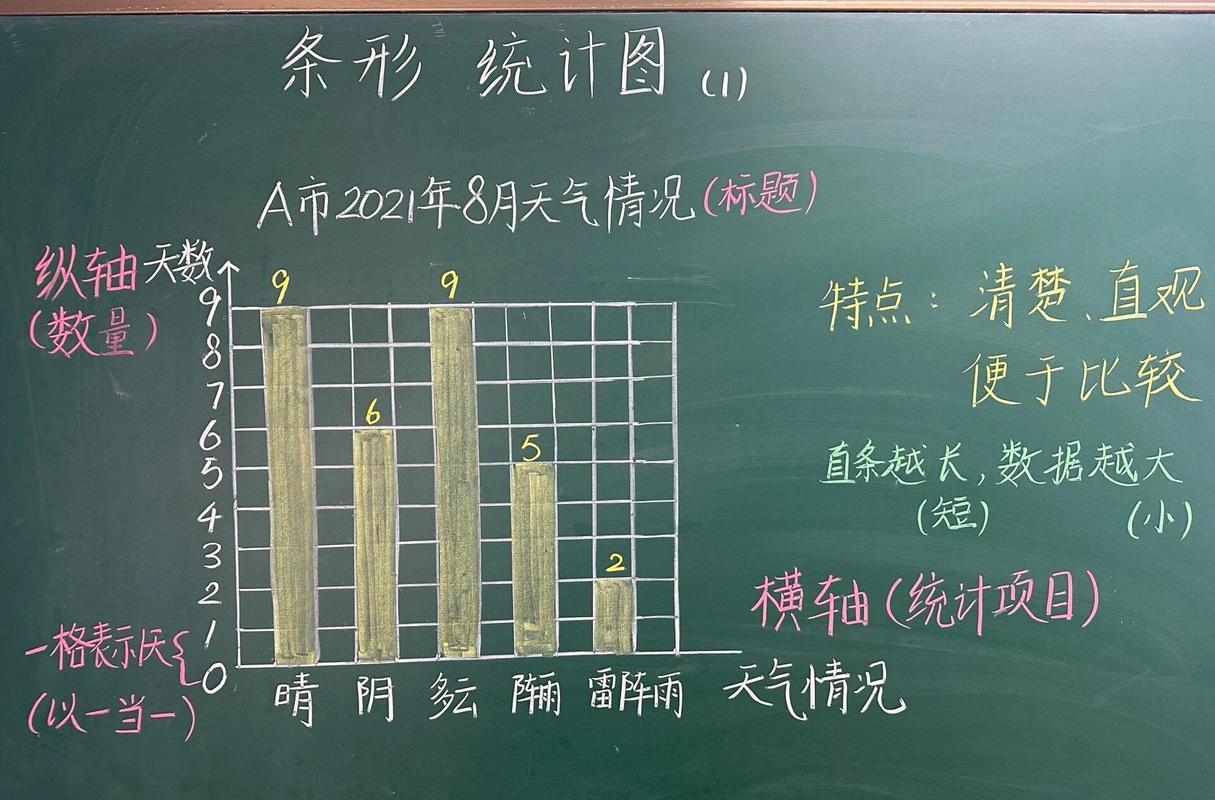 条形 统计图 (1)
A市2021年8月天气情况(标题)
纵轴 天数
(数量)
9 9
6
5
2
9
8
7
6
5
4
3
2
1
0
一格表示1天
(以一当一)
晴 阴 多云 阵雨 雷阵雨 天气情况
特点：清楚、直观
便于比较
直条越长,数据越大
(短) (小)
横轴(统计项目)